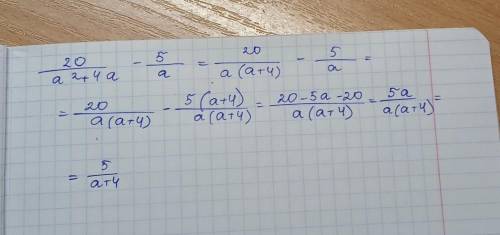 20/(a²+4a) - 5/a = 20/(a(a+4)) - 5/a =
= 20/(a(a+4)) - 5(a+4)/(a(a+4)) = (20-5a-20)/(a(a+4)) = 5a/(a(a+4)) =
= 5/(a+4)